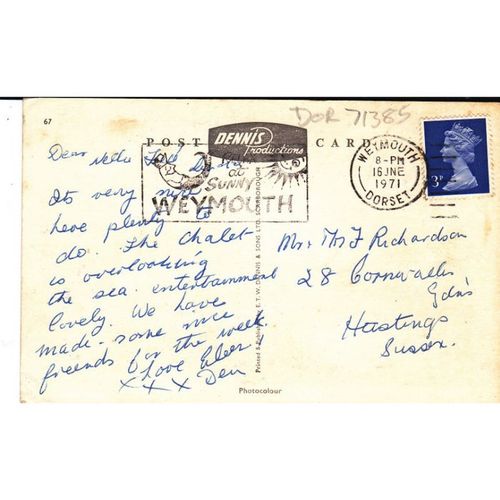 67
DOR 71385
POST CARD
DENNIS
Productions
WEYMOUTH
8-PM
16 JNE
1971
DORSET
3P
at
SUNNY
WEYMOUTH
Dear Nella
Its very nice
have plenty to
do. The Chalet
is overlooking
the sea. entertainment
lovely. We have
made some nice
freends for the week
Love
X X X Den
Mr. Mrs J Richardson
28 Cornwallis
Gdns
Hastings
Sussex.
Printed & Published by E.T.W. DENNIS & SONS LTD. SCARBOROUGH
Photocolour